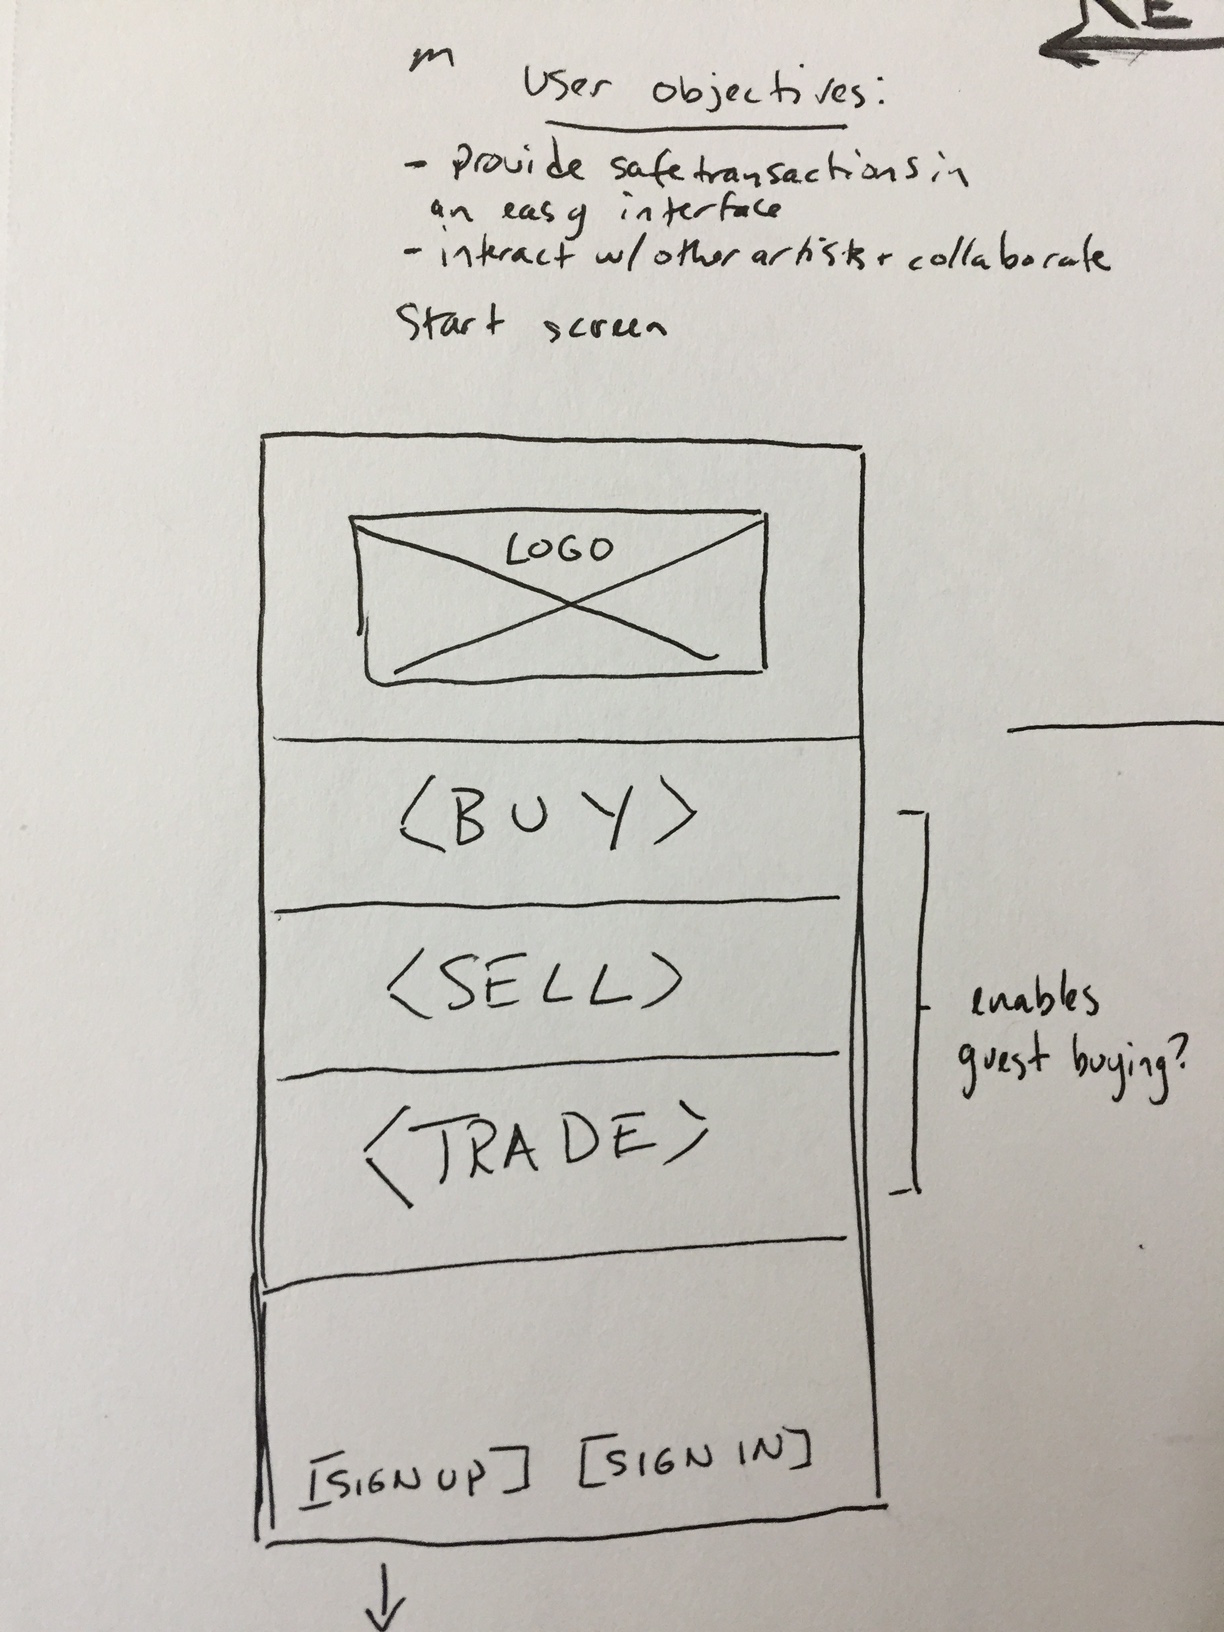 m
User objectives:
- provide safe transactions in
an easy interface
- interact w/ other artists + collaborate
Start screen
LOGO
<BUY>
<SELL>
<TRADE>
enables
guest buying?
[SIGN UP] [SIGN IN]